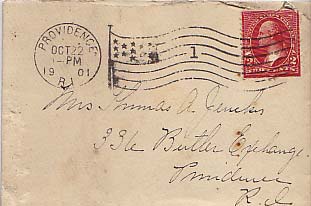 PROVIDENCE
OCT 22
1-PM
1901
R.I.
1
2 TWO CENTS 2
Mrs Thomas A. Jencks
336 Butler Exchange.
Providence
R.I.